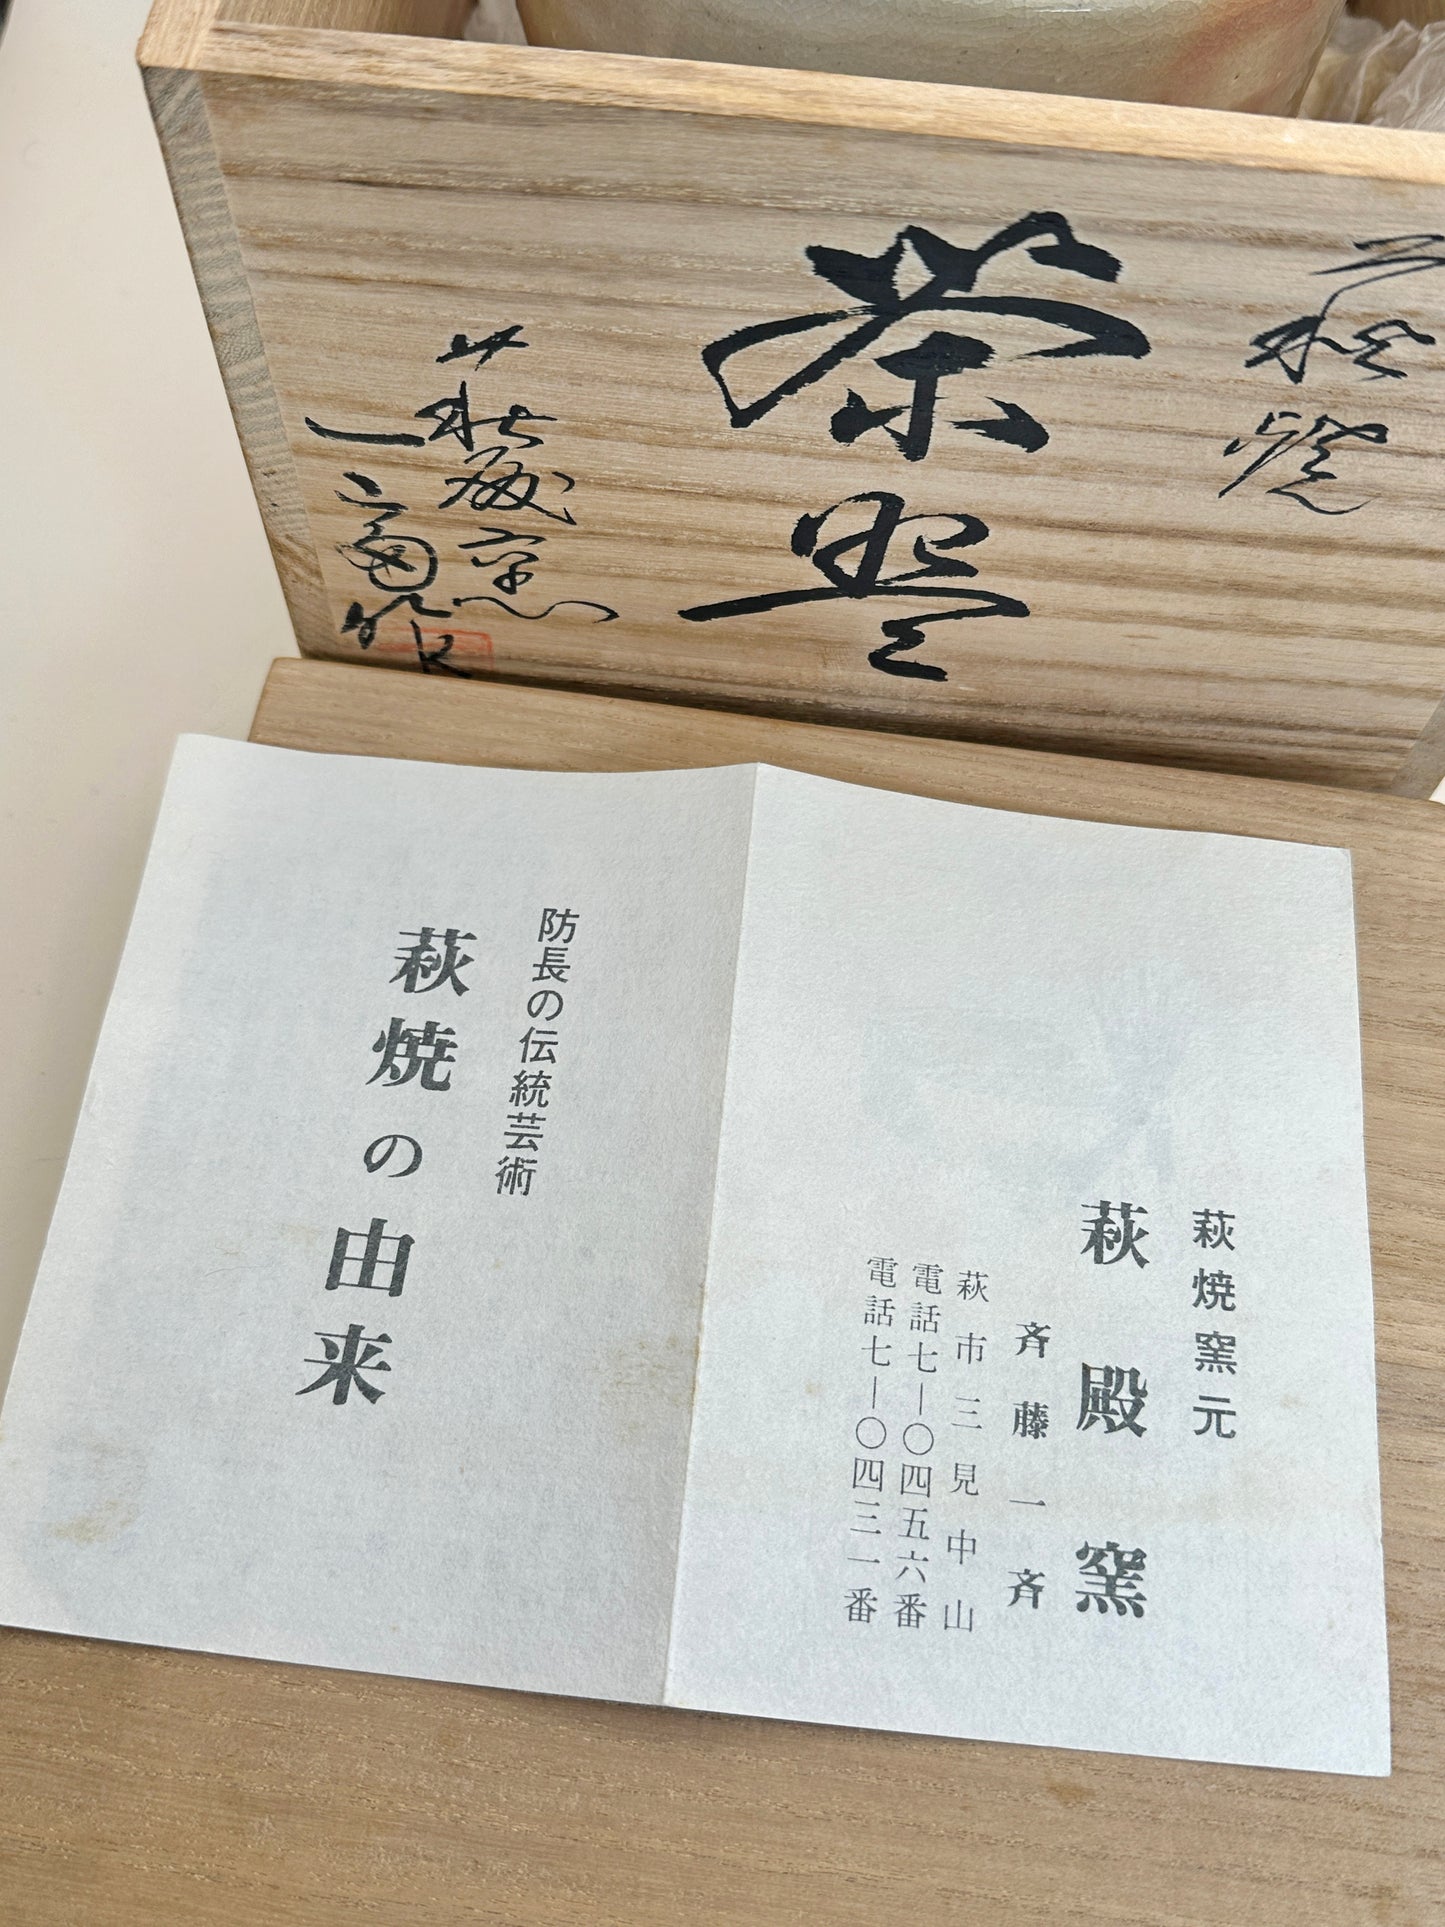 萩焼
茶器
萩殿窯
一斎作
防長の伝統芸術
萩焼の由来
萩焼窯元
萩殿窯
斉藤一斉
萩市三見中山
電話七ー〇四五六番
電話七ー〇四三一番